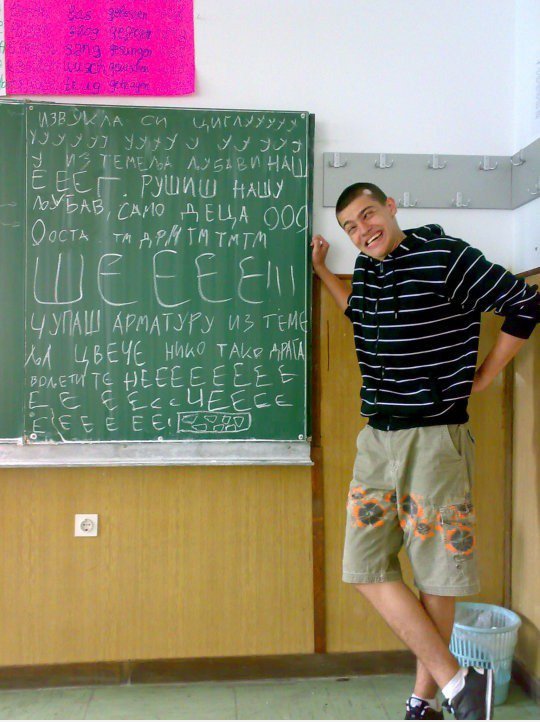 las gelesen
gesungen
ИЗВУКЛА СИ ЦИГЛУУУУУ
УУУУУУ УУУУУ У УУУУУ
У ИЗ ТЕМЕЉА ЉУБАВИ НАШ
ЕЕЕ Г. РУШИШ НАШУ
ЉУБАВ, САМО ДЕЦА ООО
ООСТА ТМ ДРМ ТМТМТМ
ШЕЕЕЕ!!!
ЧУПАШ АРМАТУРУ ИЗ ТЕМЕ
ЉА ЦВЕЧЕ НИКО ТАКО ДРАГА
ВОЛЕТИ ТЕ НЕЕЕЕЕЕЕЕ
Е Е Е Е Е Е Е Ч Е Е Е Е Е
Е Е Е Е Е Е!